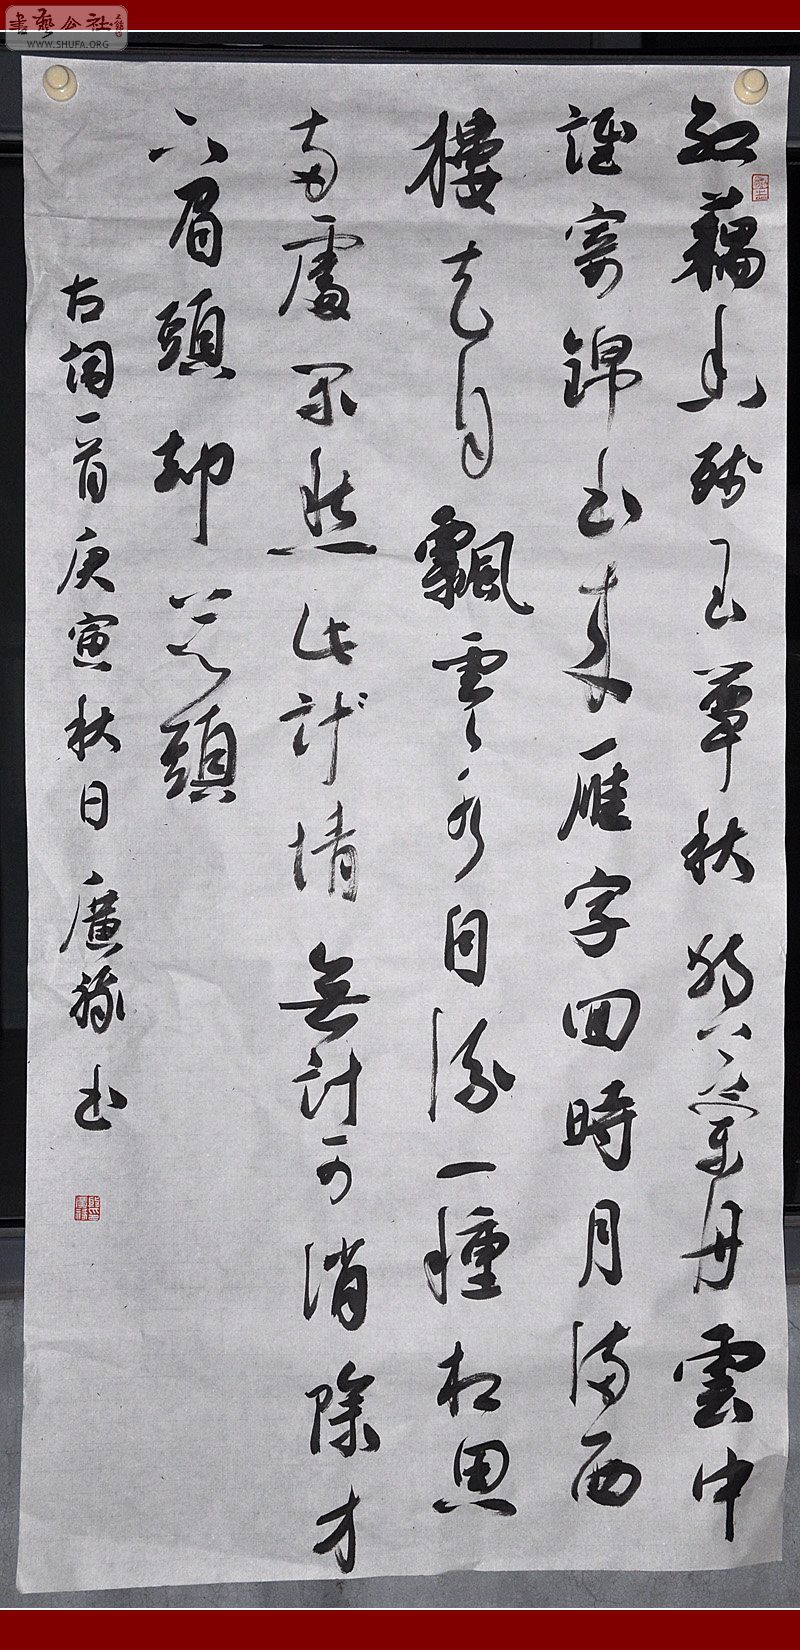 書藝公社
WWW.SHUFA.ORG
紅藕香殘玉簟秋獨上蘭舟雲中
誰寄錦書來雁字回時月滿西
樓花自飄零水自流一種相思
兩處閑愁此計情無計可消除才
下眉頭却上心頭
古詞一首庚寅秋日廣書